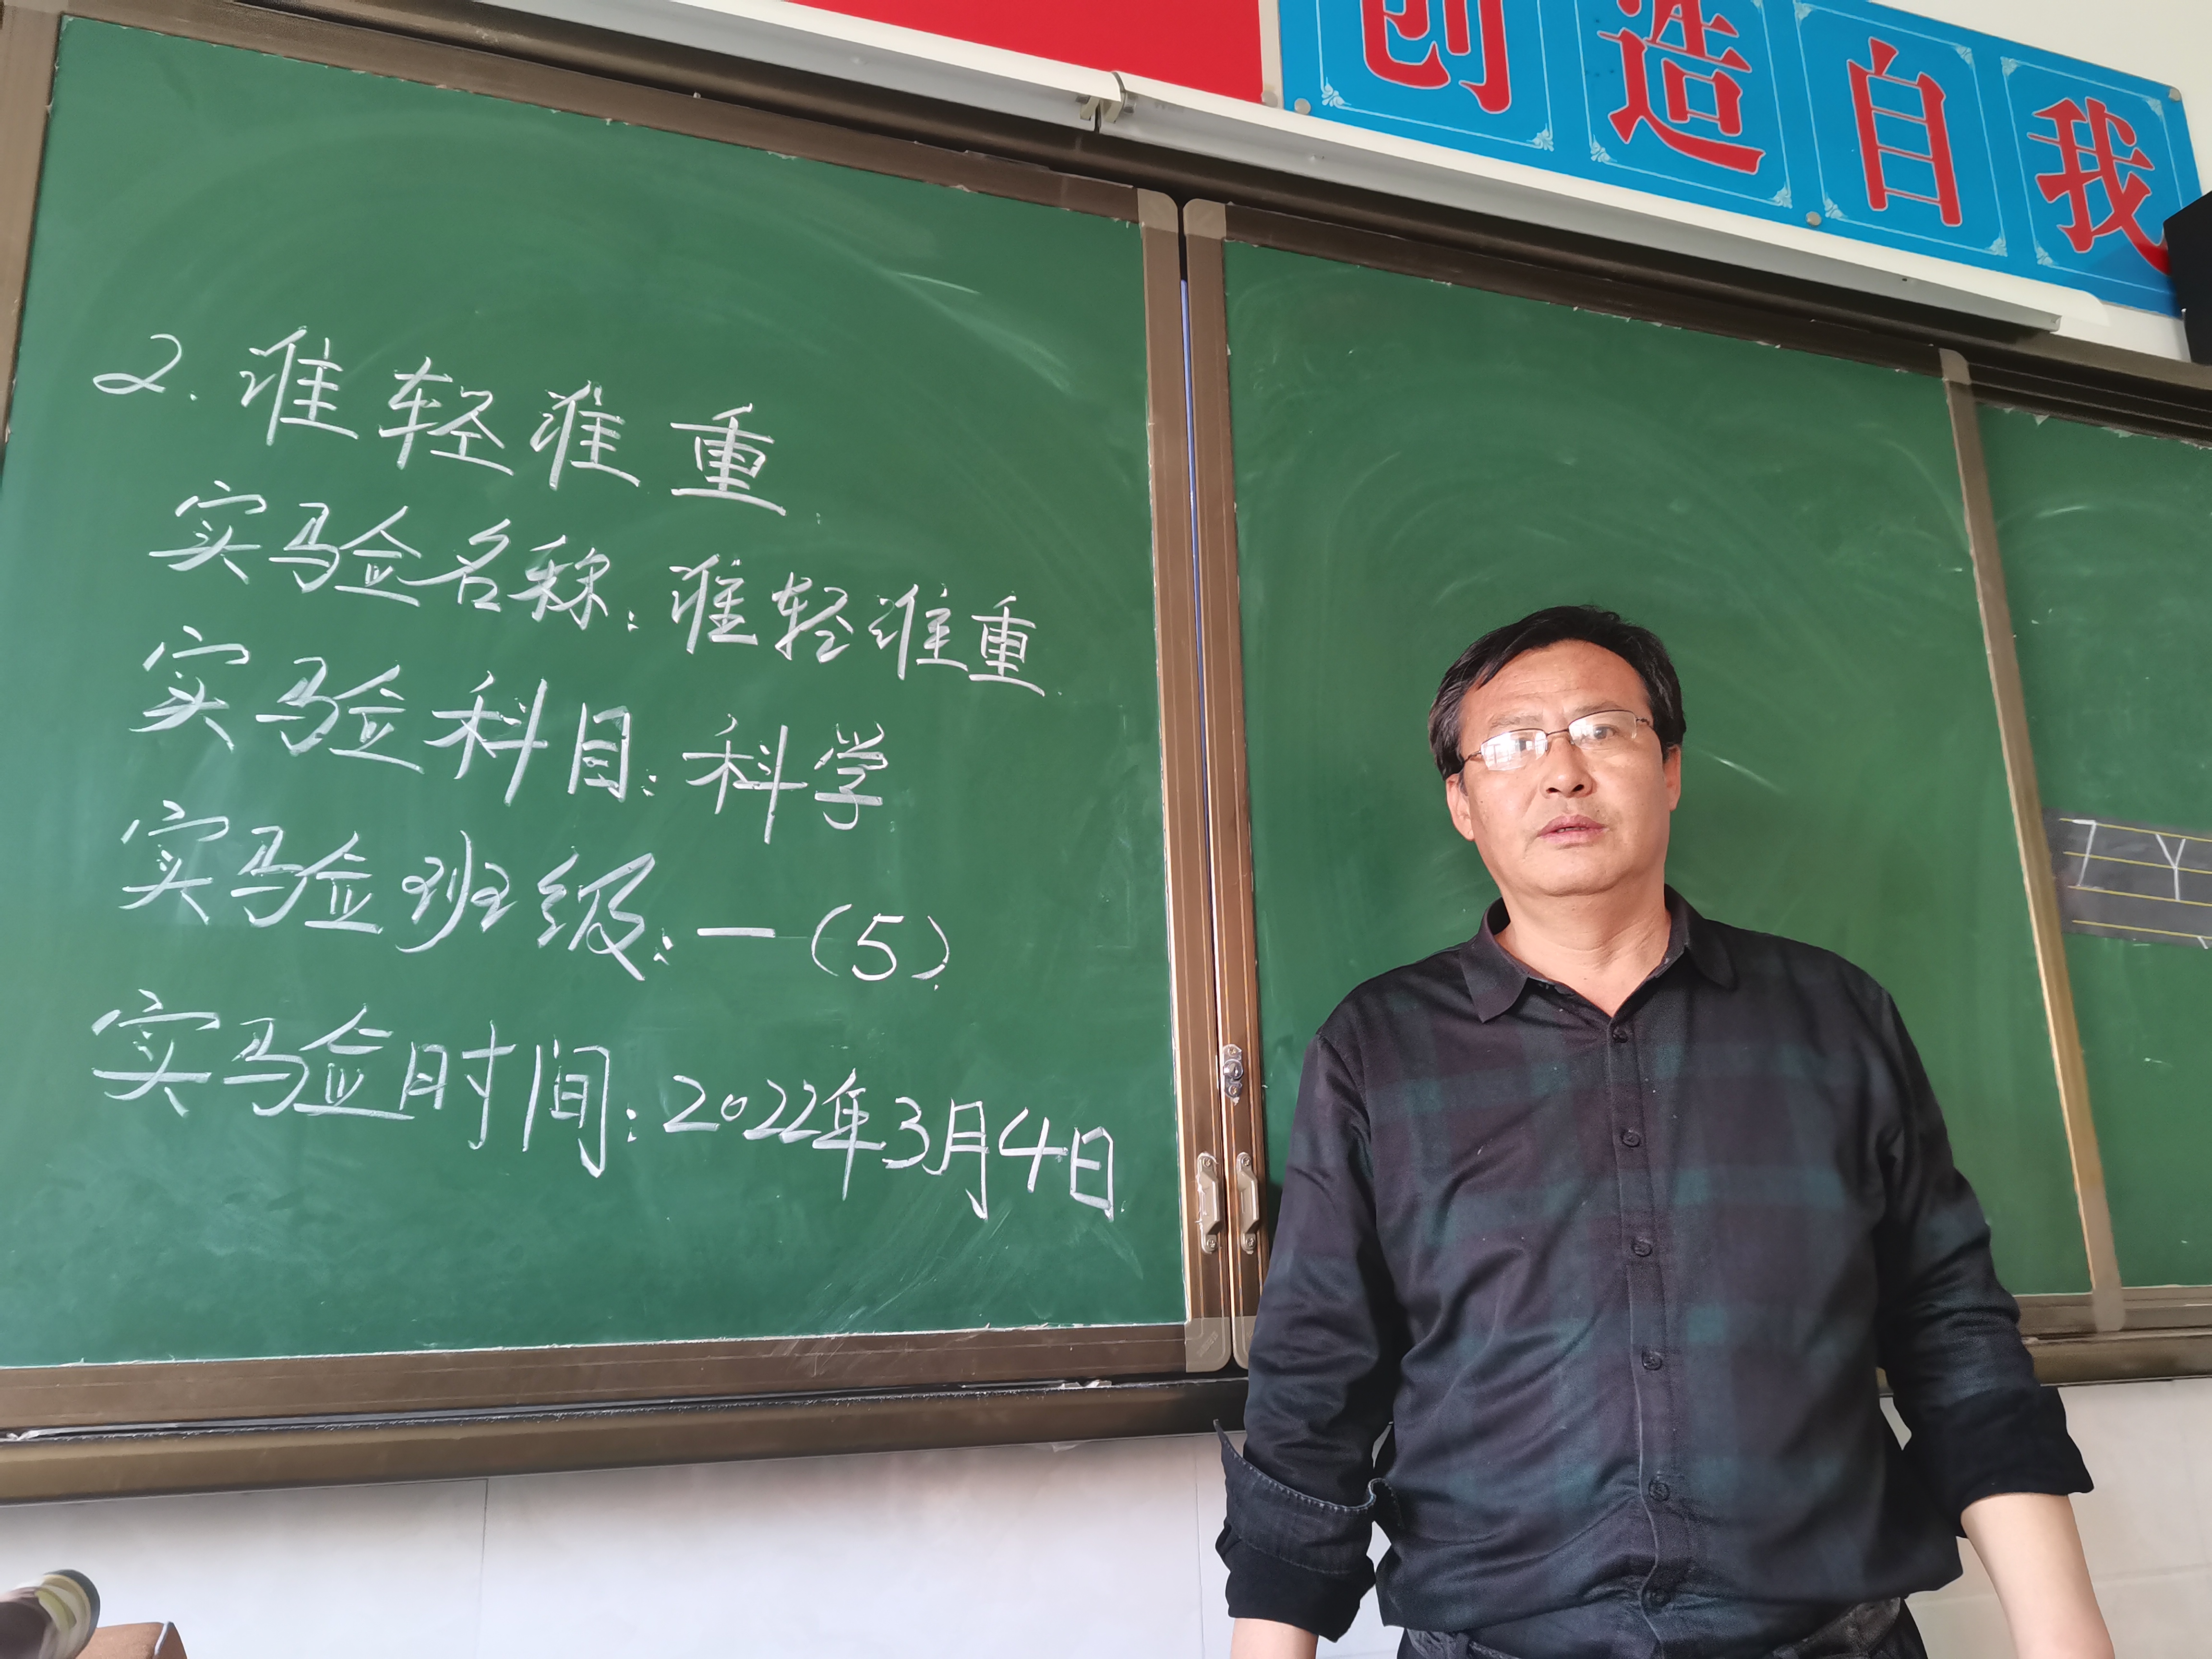 创造自我
2. 谁轻谁重
实验名称: 谁轻谁重
实验科目: 科学
实验班级: 一(5)
实验时间: 2022年3月4日